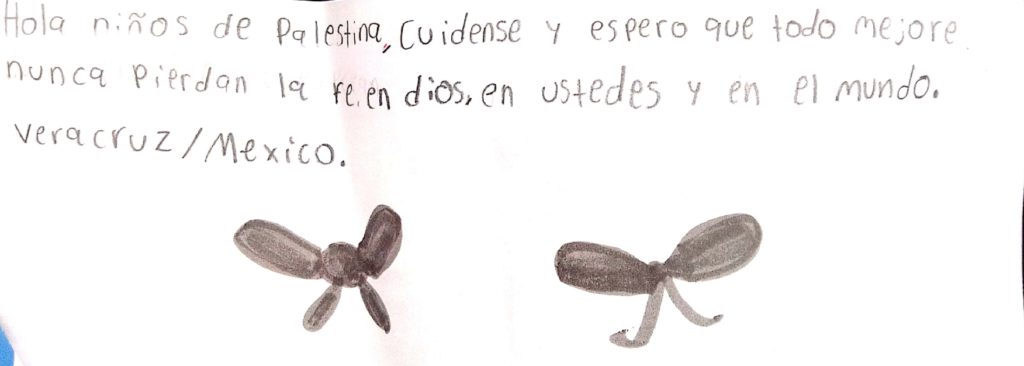 Hola niños de Palestina, Cuidense y espero que todo mejore.
nunca Pierdan la fe en dios, en ustedes y en el mundo.
veracruz/Mexico.